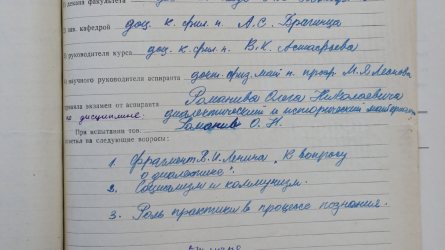 декан факультета
зав. кафедрой доц. к. фил. н. А.С. Брагинца
руководителя курса доц. к. фил. н. В.К.
научного руководителя аспиранта докт. физ. мат. н. проф. М.Я. Леонова
приняла экзамен от аспиранта Романива Олега Николаевича
по дисциплине: диалектический и исторический материализм
При испытании тов. Романив О. Н.
на следующие вопросы:
1. Фрагмент В.И. Ленина „К вопросу
о диалектике".
2. Социализм и коммунизм.
3. Роль практики в процессе познания.